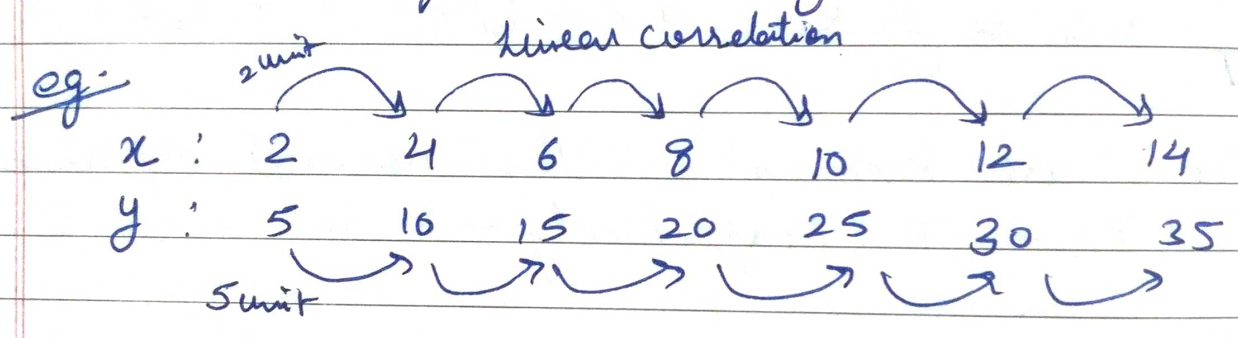 Linear correlation
2 unit
eg:-
x : 2 4 6 8 10 12 14
y : 5 10 15 20 25 30 35
5 unit